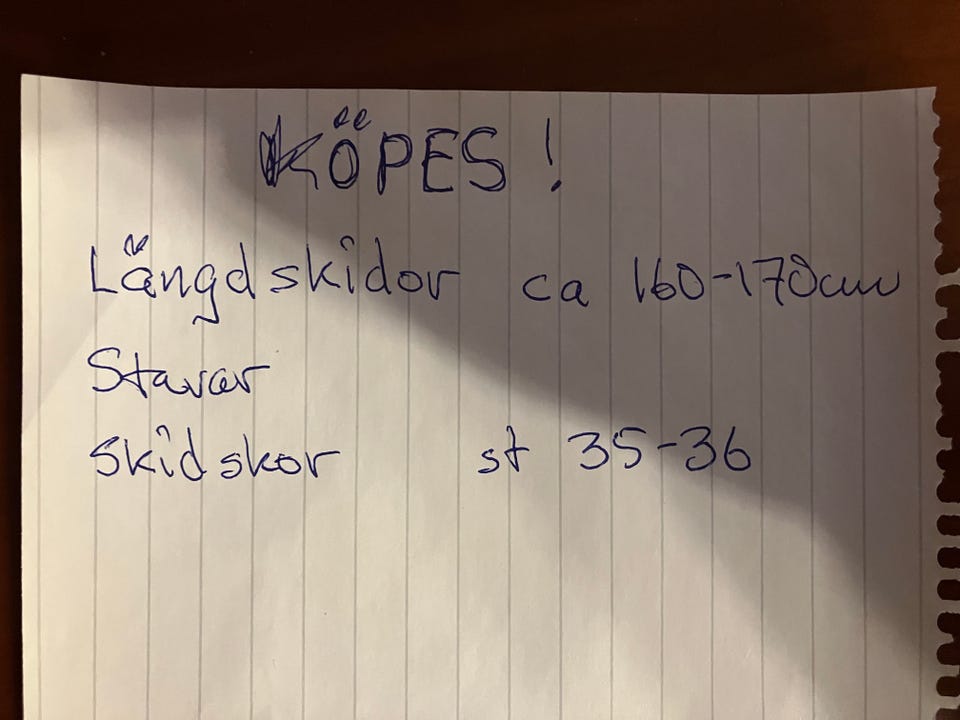 KÖPES !
Längdskidor ca 160-170cm
Stavar
Skidskor st 35-36